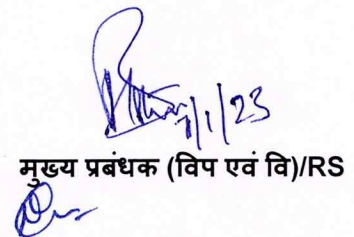 7/1/23
मुख्य प्रबंधक (विप एवं वि)/RS